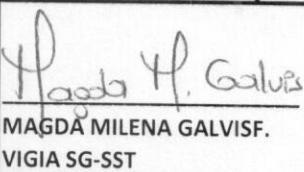 Magda M. Galvis
MAGDA MILENA GALVISF.
VIGIA SG-SST